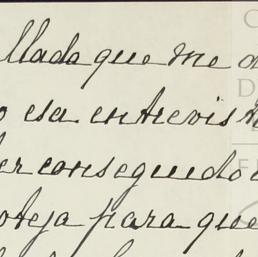 llada que me
esa entrevis
er conseguido
oteja para que